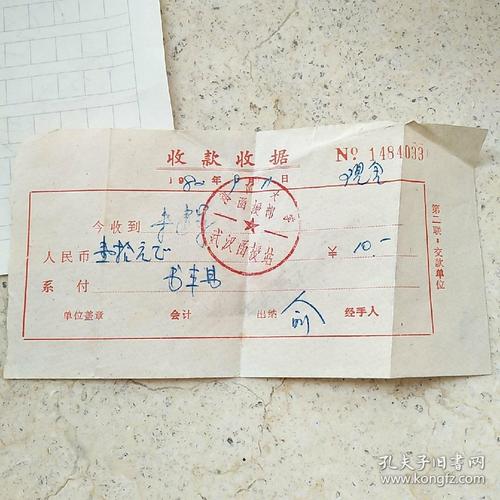 收款收据
№ 1484033
1982年9月11日
现金
今收到 李
函授部
武汉函授站
人民币 壹拾元正
￥ 10.-
系付 书本费
单位盖章 会计 出纳 俞 经手人
第二联：交款单位
孔夫子旧书网
www.kongfz.com